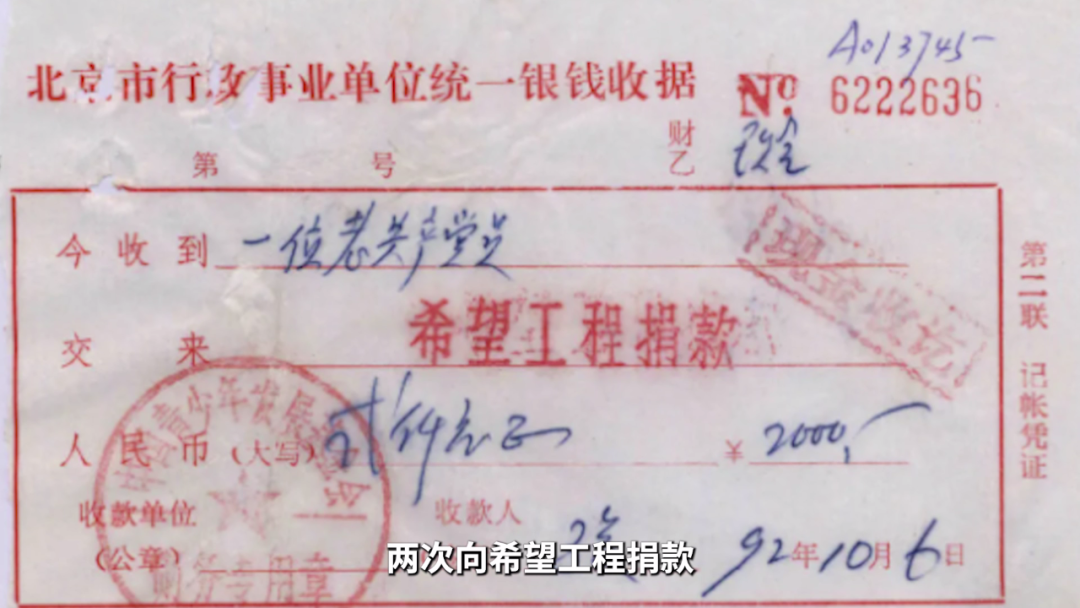 A013745
北京市行政事业单位统一银钱收据 No. 6222636
第 号 财乙
今收到 一位老共产党员
现金收讫
交来 希望工程捐款
人民币(大写) 贰仟元正 ¥ 2000,-
中国青少年发展基金会
财务专用章
收款单位 收款人
(公章) 92年10月6日
第二联 记帐凭证
两次向希望工程捐款